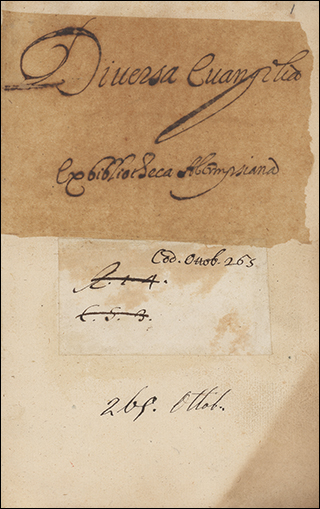 1
Diversa Euangelia
Ex bibliotheca Altempsiana
Cod. Ottob. 265
A. 1 4.
C. S. 3.
265. Ottob.